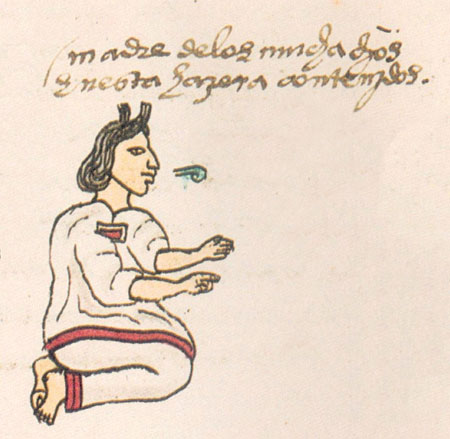 madre delos muchachos
enesta hazera contenjdos.